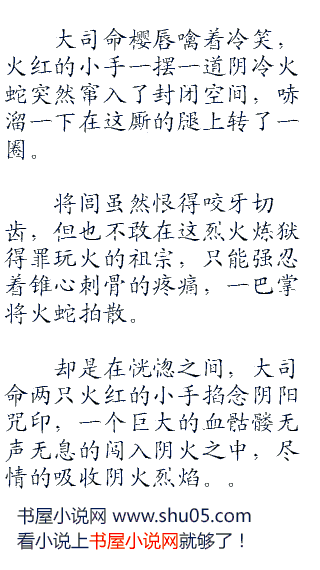 大司命樱唇噙着冷笑，
火红的小手一摆一道阴冷火
蛇突然窜入了封闭空间，哧
溜一下在这厮的腿上转了一
圈。
将闾虽然恨得咬牙切
齿，但也不敢在这烈火炼狱
得罪玩火的祖宗，只能强忍
着锥心刺骨的疼痛，一巴掌
将火蛇拍散。
却是在恍惚之间，大司
命两只火红的小手掐念阴阳
咒印，一个巨大的血骷髅无
声无息的闯入阴火之中，尽
情的吸收阴火烈焰。。
书屋小说网 www.shu05.com
看小说上书屋小说网就够了！